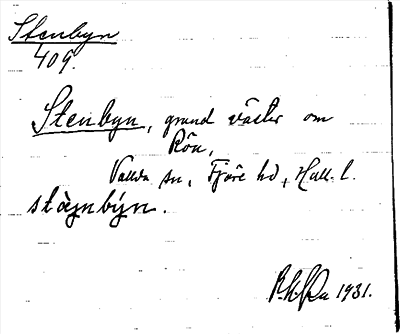 Stenbyn
409.
Stenbyn, grund väster om
Rön,
Vallda sn, Fjäre hd, Hall. l.
stæ̀nbýn.
1931.